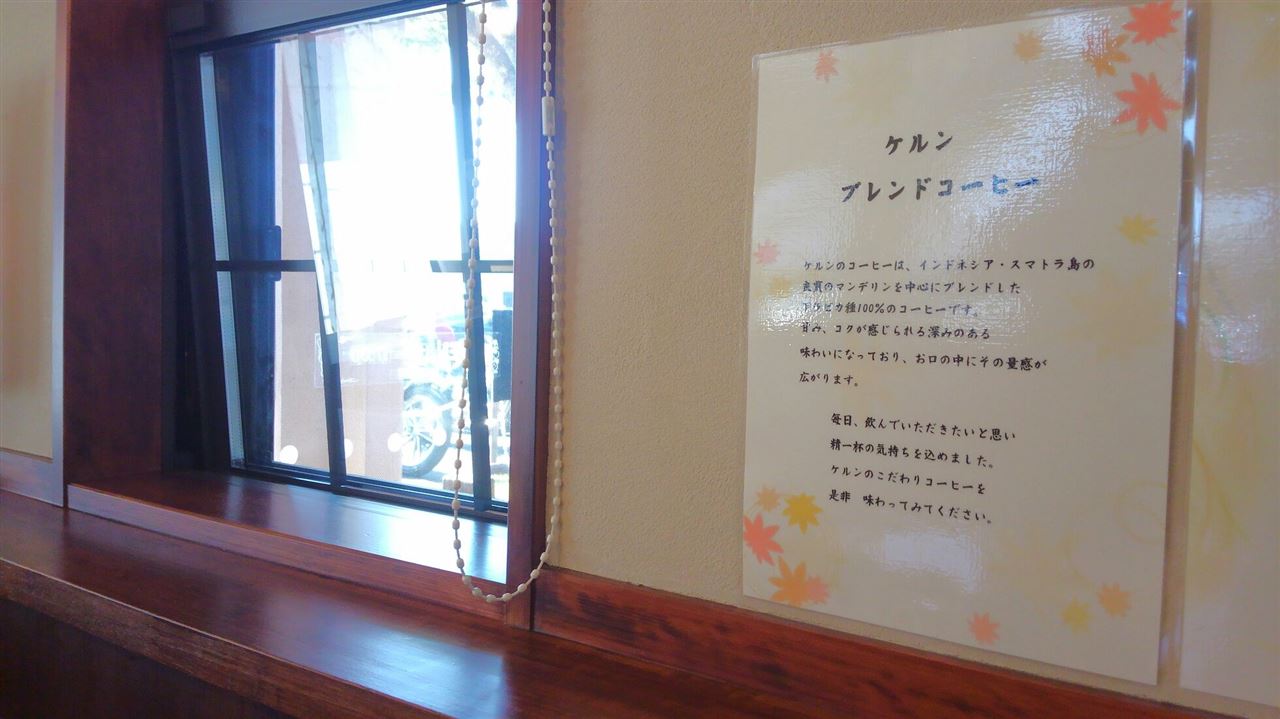 ケルン
ブレンドコーヒー
ケルンのコーヒーは、インドネシア・スマトラ島の
良質のマンデリンを中心にブレンドした
アラビカ種100%のコーヒーです。
甘み、コクが感じられる深みのある
味わいになっており、お口の中にその量感が
広がります。
毎日、飲んでいただきたいと思い
精一杯の気持ちを込めました。
ケルンのこだわりコーヒーを
是非 味わってみてください。